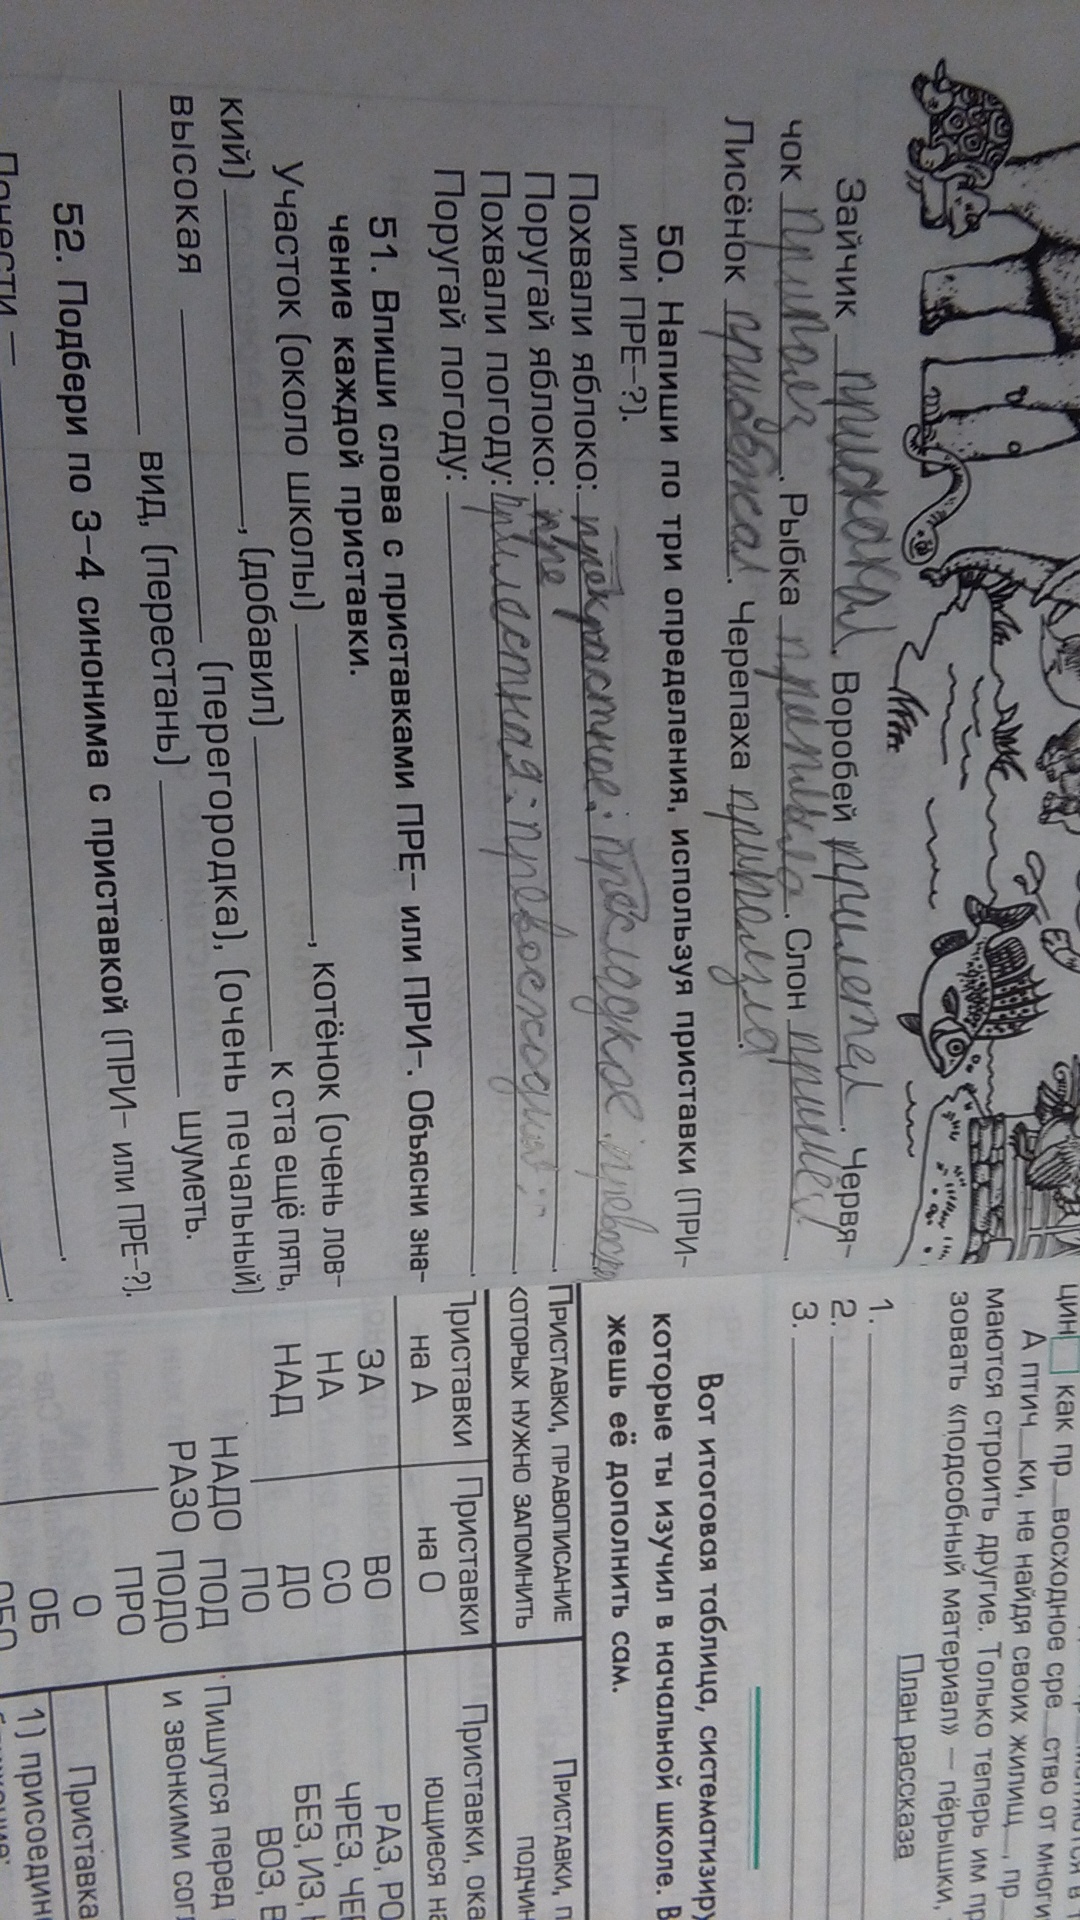 Зайчик прискакал. Воробей прилетел. Червя-
чок приполз. Рыбка приплыла. Слон пришёл.
Лисёнок прибежал. Черепаха приползла.
50. Напиши по три определения, используя приставки (ПРИ-
или ПРЕ-?).
Похвали яблоко: прекрасное; пресладкое;
Поругай яблоко: пре
Похвали погоду:
Поругай погоду:
51. Впиши слова с приставками ПРЕ- или ПРИ-. Объясни зна-
чение каждой приставки.
Участок (около школы) , котёнок (очень лов-
кий) , (добавил) к ста ещё пять,
высокая (перегородка), (очень печальный)
вид, (перестань) шуметь.
52. Подбери по 3-4 синонима с приставкой (ПРИ- или ПРЕ-?).
как пр_восходное сре_ство от многи
А птич_ки, не найдя своих жилищ_, пр_
маются строить другие. Только теперь им пр
зовать «подсобный материал» — пёрышки,
План рассказа
1.
2.
3.
Вот итоговая таблица, систематизиру
которые ты изучил в начальной школе. В
жешь её дополнить сам.
ПРИСТАВКИ, ПРАВОПИСАНИЕ
КОТОРЫХ НУЖНО ЗАПОМНИТЬ
Приставки на А
ЗА
НА
НАД
НАДО
РАЗО
Приставки на О
ВО
СО
ДО
ПО
ПОД
ПОДО
ПРО
О
ОБ
ОБО
ПРИСТАВКИ, П
ПОДЧИН
Приставки, ока
ющиеся на
РАЗ, РО
ЧРЕЗ, ЧЕ
БЕЗ, ИЗ,
ВОЗ, В
Пишутся перед
и звонкими согл
Приставка
1) присоедин